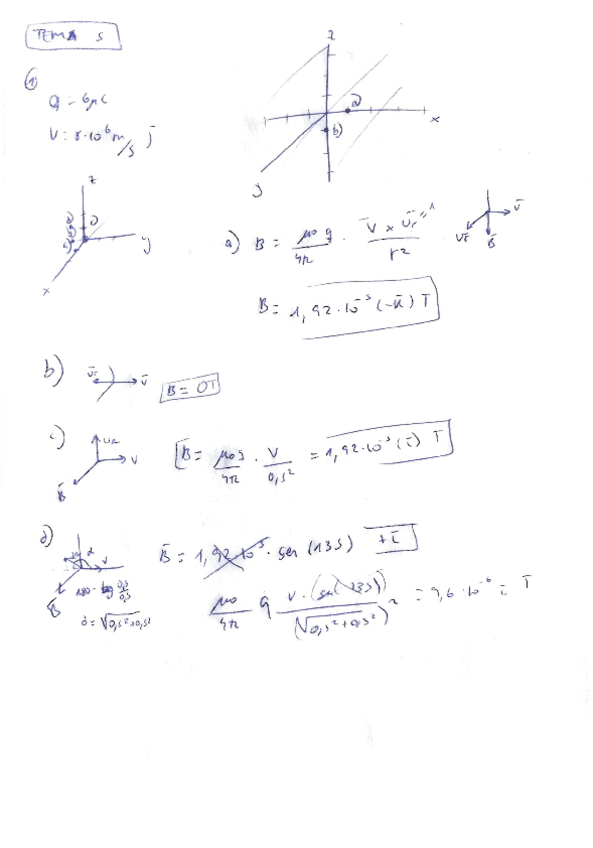 TEMA 5
①
q = 6μC
V = 8·10⁶ m/s j̄
z
a)
x
b)
y
z
y
x
a) B = μ₀ q / 4π · V̄ × ūr⁼¹ / r²
v̄
ūr
B̄
B = 1,92·10⁻⁵ (-k̄) T
b) ūr v̄ B = 0T
c) ur v B̄
B̄ = μ₀q / 4π · V / 0,5² = 1,92·10⁻⁵ (ī) T
d) α v B̄
d = √0,5²+0,5²
B̄ = 1,92·10⁻⁵ · sen (135) +ī
μ₀ / 4π q v · (sen(135)) / (√0,5²+0,5²)² = 9,6·10⁻⁶ ī T